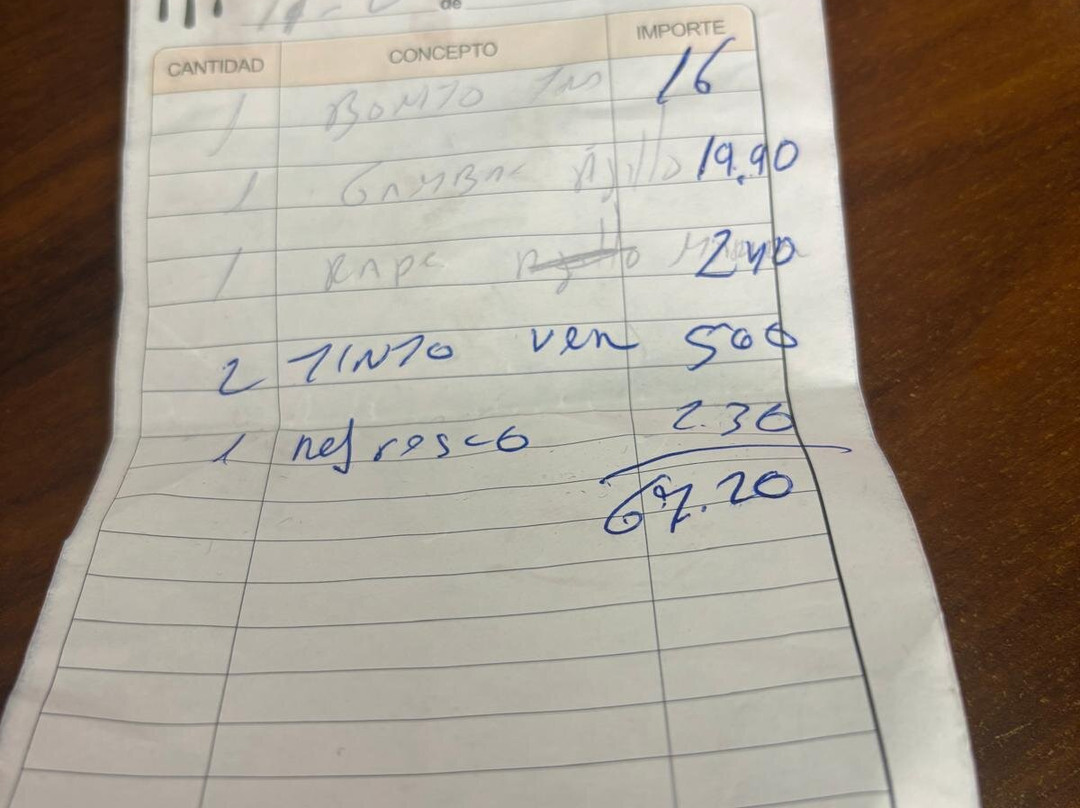 de
CANTIDAD CONCEPTO IMPORTE
1 BONITO 16
1 GAMBAS Ajillo 19.90
1 RAPE Ajillo 240
2 TINTO ven 500
1 refresco 2.30
67.20